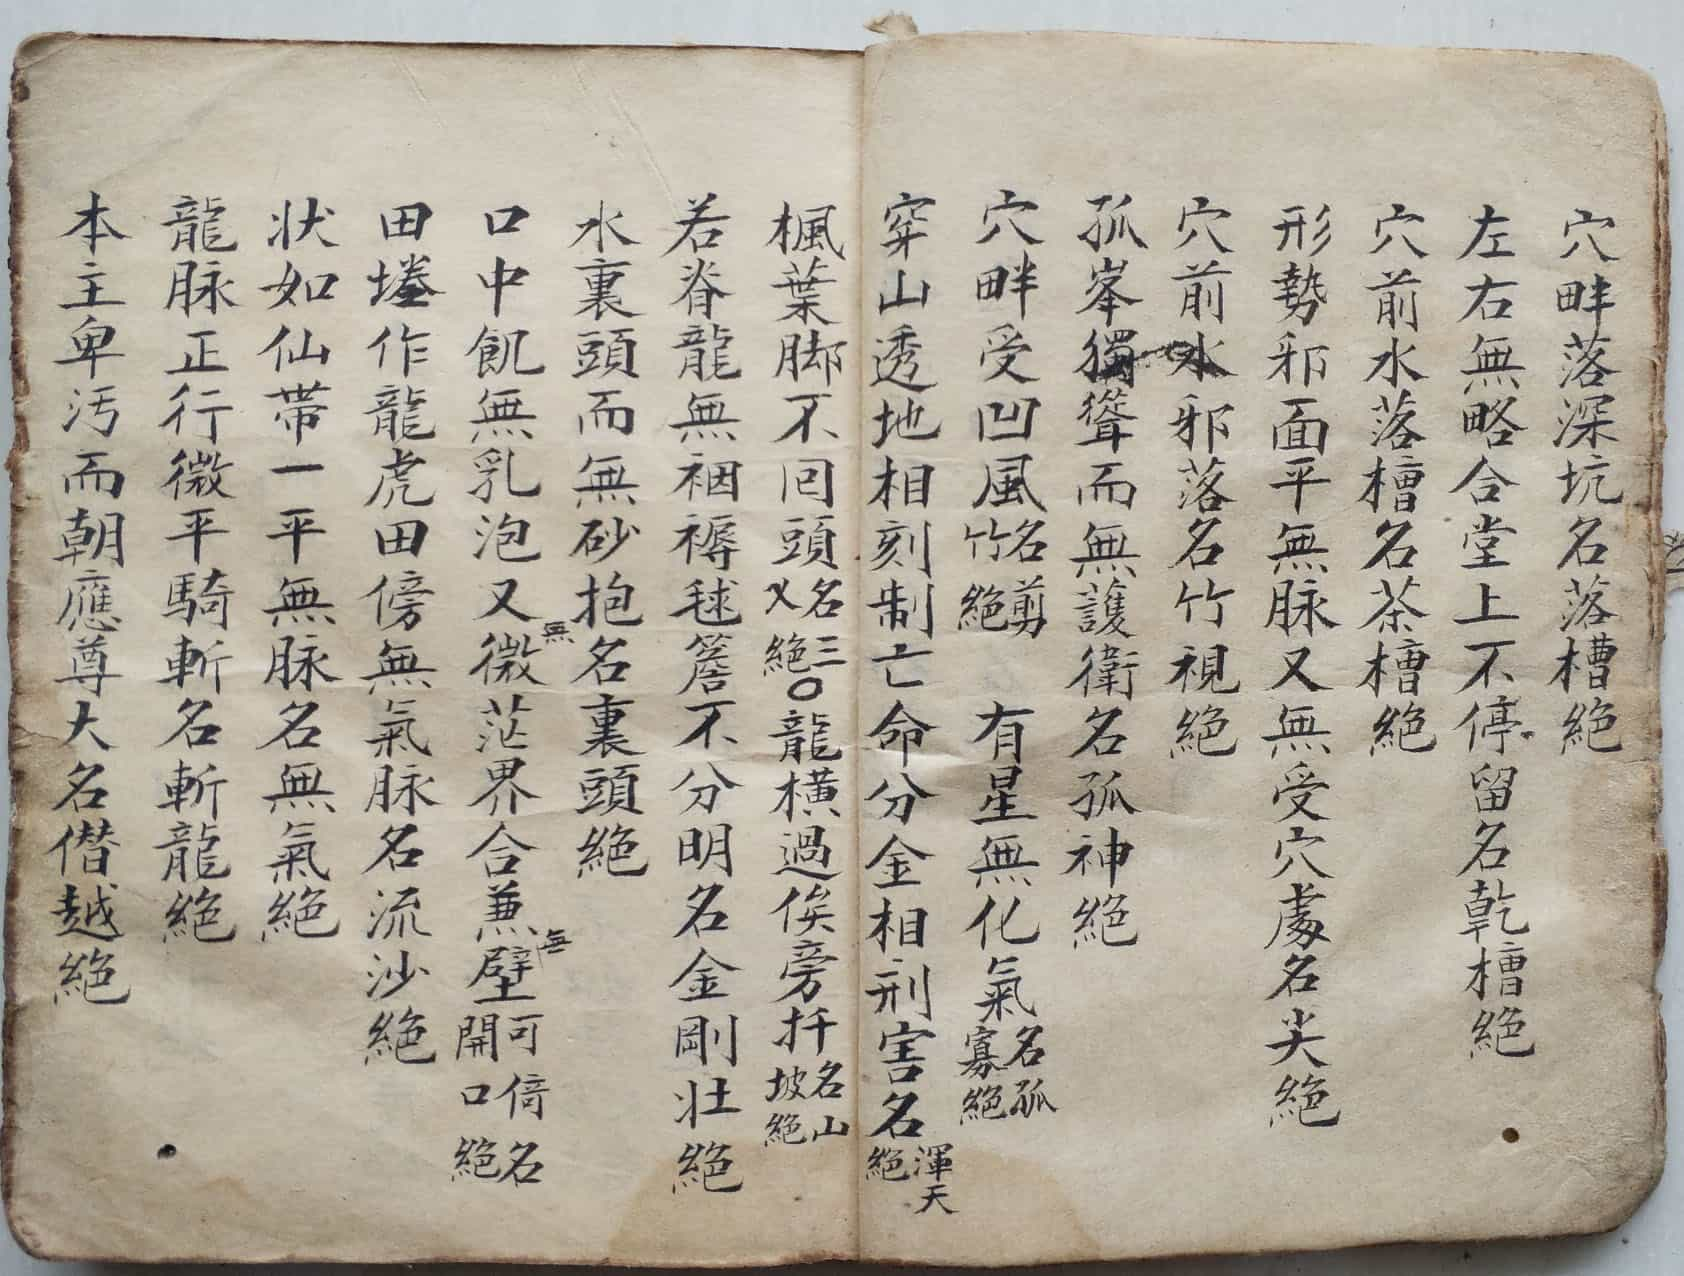 穴畔落深坑名落槽絕
左右無略合堂上不停留名乾槽絕
穴前水落槽名茶槽絕
形勢邪面平無脉又無受穴處名尖絕
穴前水邪落名竹視絕
孤峯獨聳而無護衛名孤神絕
穴畔受凹風名剪竹絕 有星無化氣名孤寡絕
穿山透地相刻制亡命分金相刑害名渾天絕
楓葉脚不囘頭名三乂絕○龍橫過俟旁扦名山坡絕
若脊龍無裀褥毬簷不分明名金剛壮絕
水裏頭而無砂抱名裏頭絕
口中飢無乳泡又無微茫界合兼無壁可倚名開口絕
田墢作龍虎田傍無氣脉名流沙絕
状如仙带一平無脉名無氣絕
龍脉正行微平騎斬名斬龍絕
本主卑污而朝應尊大名僭越絕